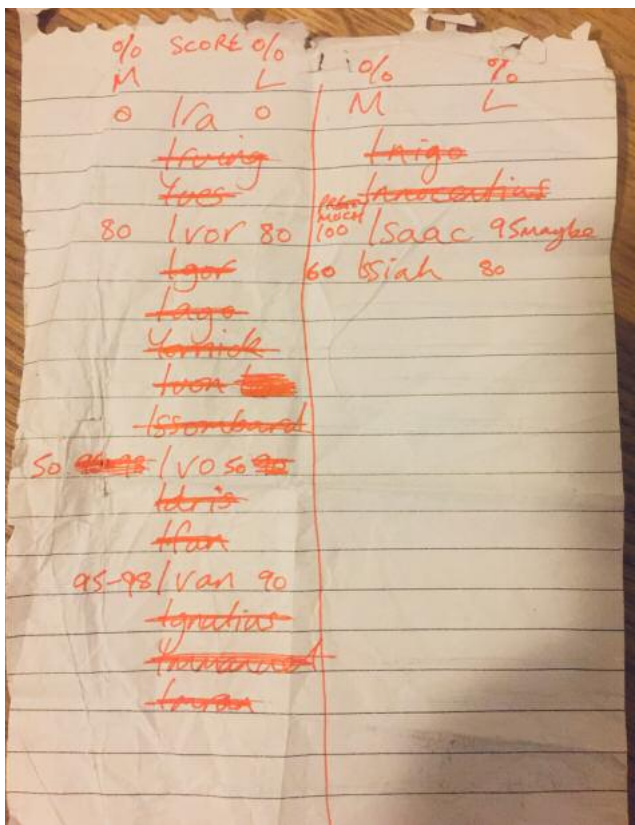 % SCORE %
M L
0 Ira 0
Irving
Yves
80 Ivor 80
Igor
Iago
Yorrick
Ivon
Issombard
50 95-98 Ivo 50 90
Idris
Ifan
95-98 Ivan 90
Ignatius
Immanuel
Imran
% %
M L
Inigo
Innocentius
PRETTY
MUCH
100 Isaac 95 maybe
60 Isiah 80